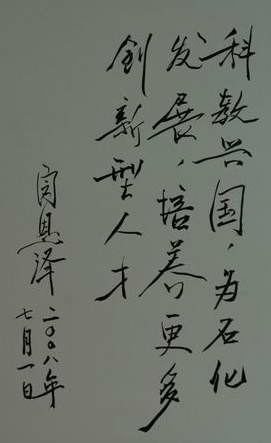 科教兴国,为石化
发展,培养更多
创新型人才
闵恩泽
二〇〇八年
七月一日